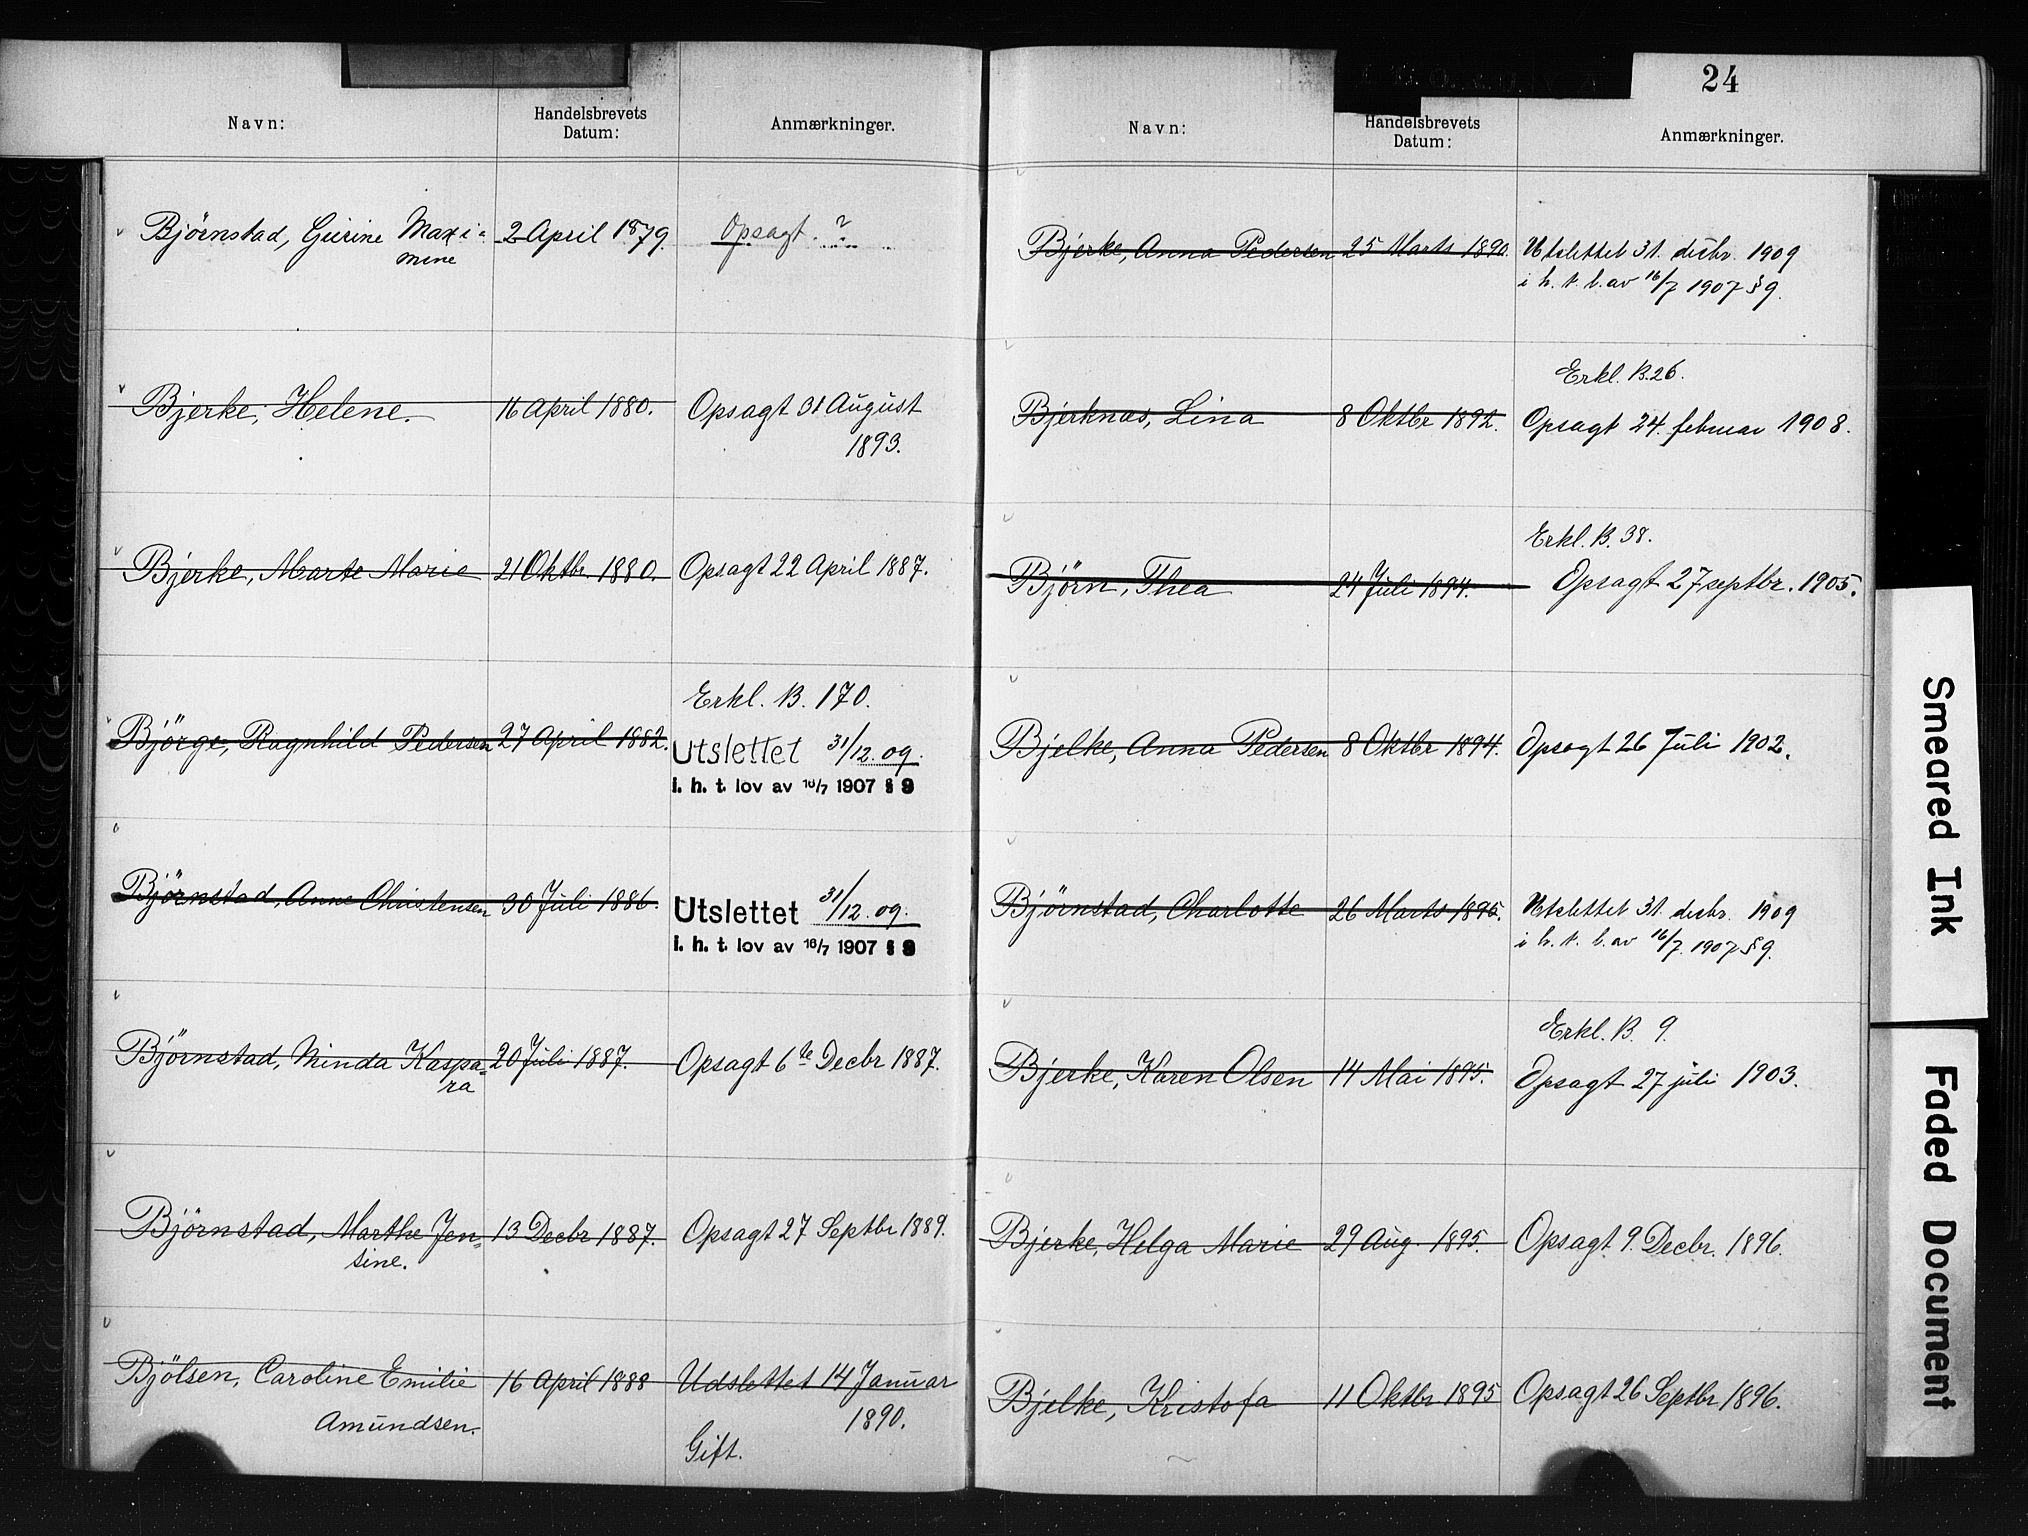 24
Navn: Handelsbrevets Datum: Anmærkninger.
Bjørnstad, Gurine Maxi- 2 April 1879. Opsagt. ?
mine
Bjerke, Helene. 16 April 1880. Opsagt 31 August
1893.
Bjerke, Marte Marie 21 Oktbr. 1880. Opsagt 22 April 1887.
Erkl. B. 170.
Björge, Ragnhild Pedersen 27 April 1882. Utslettet 31/12. 09.
i. h. t. lov av 16/7 1907 § 9
Björnstad, Anne Christensen 30 Juli 1886. Utslettet 31/12. 09.
i. h. t. lov av 16/7 1907 § 9
Björnstad, Minda Kaspa- 20 Juli 1887. Opsagt 6te Decbr 1887.
ra
Björnstad, Marthe Jen- 13 Decbr 1887. Opsagt 27 Septbr 1889.
sine.
Bjölsen, Caroline Emilie 16 April 1888 Udslettet 14 Januar
Amundsen. 1890.
Gift.
Navn: Handelsbrevets Datum: Anmærkninger.
Bjerke, Anna Pedersen 25 Marts 1890. Utslettet 31. decbr. 1909
i h. t. l. av 16/7 1907 § 9.
Erkl. B. 26.
Bjerknæs, Lina 8 Oktbr 1892. Opsagt 24. februar 1908.
Erkl. B. 38.
Björn, Thea 24 Juli 1894. Opsagt 27 septbr. 1905.
Bjelke, Anna Pedersen 8 Oktbr 1894. Opsagt 26 Juli 1902.
Bjørnstad, Charlotte 26 Marts 1895. Utslettet 31. decbr. 1909
i h. t. l. av 16/7. 1907 § 9.
Erkl. B. 9.
Bjerke, Karen Olsen 14 Mai 1895. Opsagt 27 juli 1903.
Bjerke, Helga Marie 29 Aug. 1895. Opsagt 9. Decbr. 1896.
Bjelke, Kristofa 11 Oktbr 1895 Opsagt 26 Septbr 1896.
Smeared Ink
Faded Document